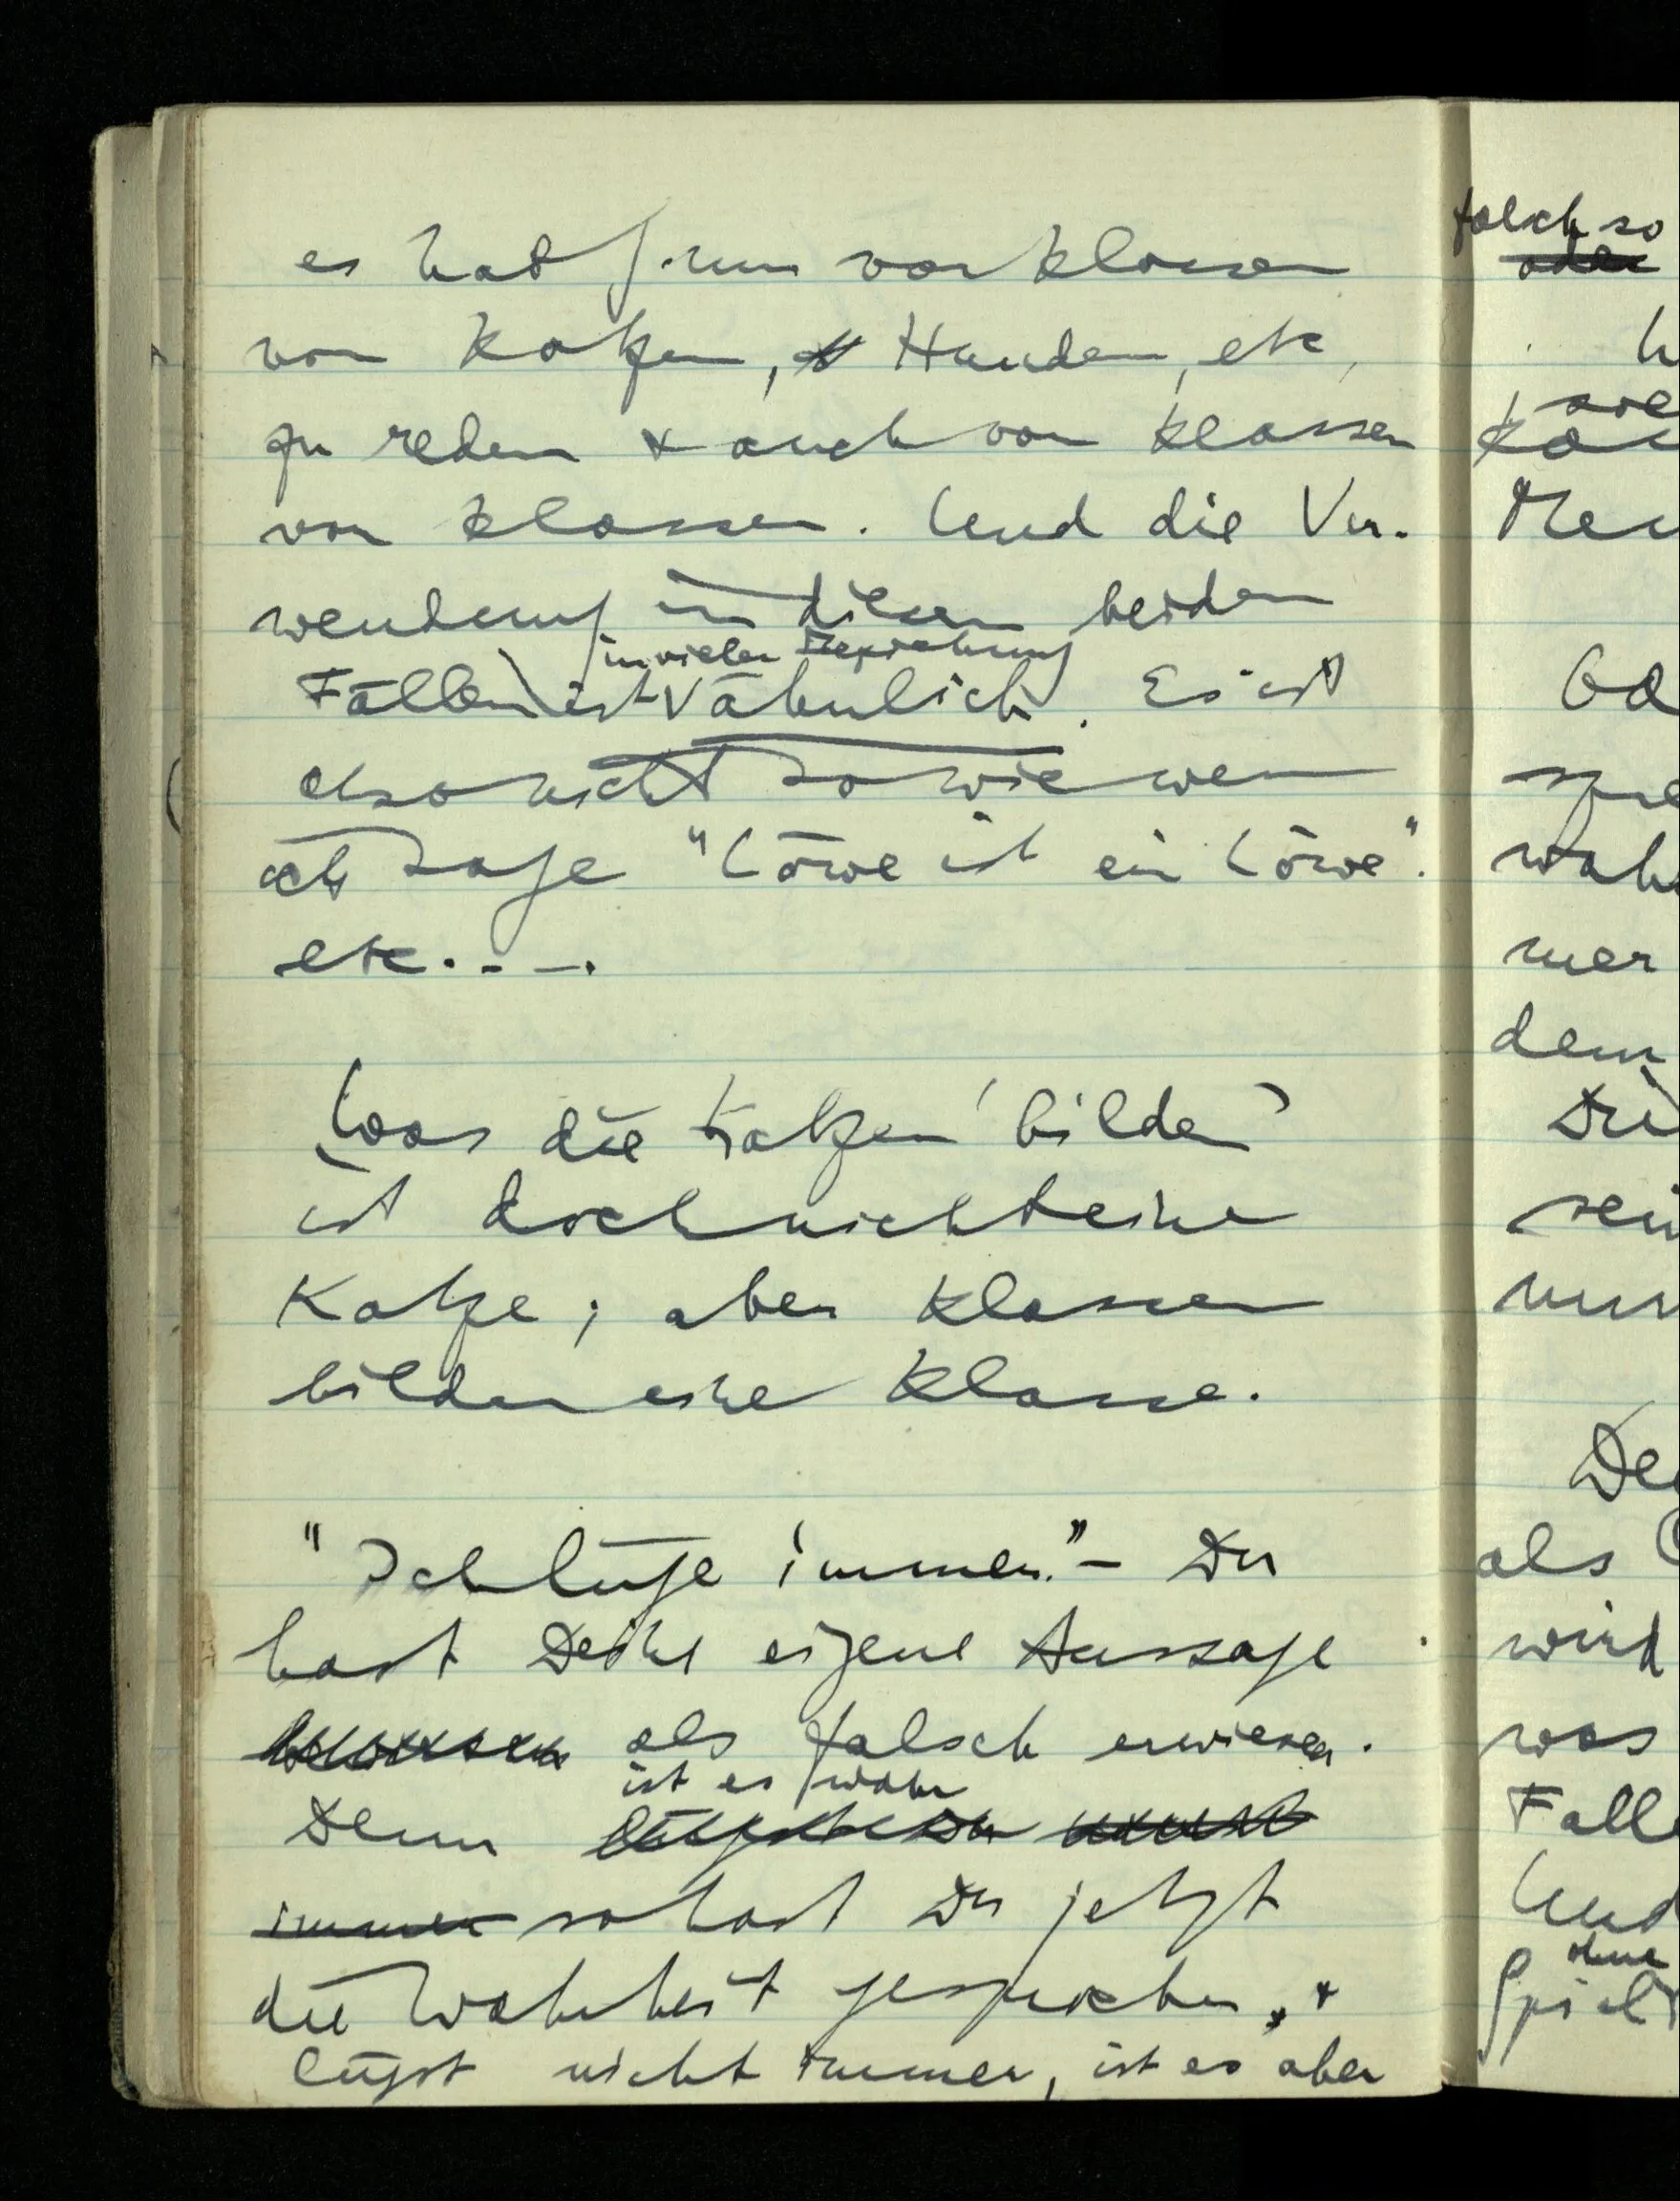 es hat Sinn von Klassen
von Katzen, Hunden, etc,
zu reden & auch von Klassen
von Klassen. Und die Ver-
wendung in diesen beiden
in vieler Beziehung
Fällen ist ähnlich. Es ist
also nicht so wie wenn
ich sage "Löwe ist ein Löwe".
etc. - - -.
Was die Katzen 'bilden'
ist doch nicht eine
Katze; aber Klassen
bilden eine Klasse.
"Ich lüge immer." – Du
hast Deine eigene Aussage
als falsch erwiesen.
ist es wahr
Denn lügst Du
immer so hast Du jetzt
die Wahrheit gesprochen, &
lügst nicht immer, ist es aber
falsch so
oder
Men
Od
wah
mer
dem
Die
sein
nur
De
als
wird
was
Falle
Und
ohne
Spiel